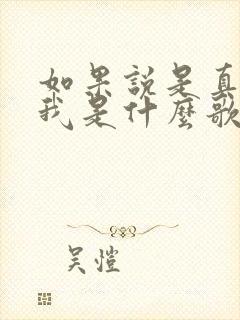 如果説是真
我是什麼歌
吴愷